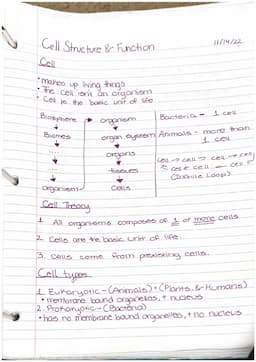 Cell Structure & Function
11/14/22
Cell
• makes up living things
• The cell isn't an organism
• Cell is the basic unit of life
Biosphere → organism
Biomes organ system
organs
tissues
organism cells
Bacteria - 1 cell
Animals - more than
1 cell
cell → cell → cell → cell
cell ← cell ← cell
Cell Theory
1. All organisms composes of 1 or more cells
2. Cells are the basic unit of life.
3. Cells come from preexisting cells.
Cell types
1. Eukaryotic - (Animals) + (Plants, & Humans)
• membrane bound organelles, + nucleus
2. Prokaryotic - (Bacteria)
• has no membrane bound organelles, + no nucleus